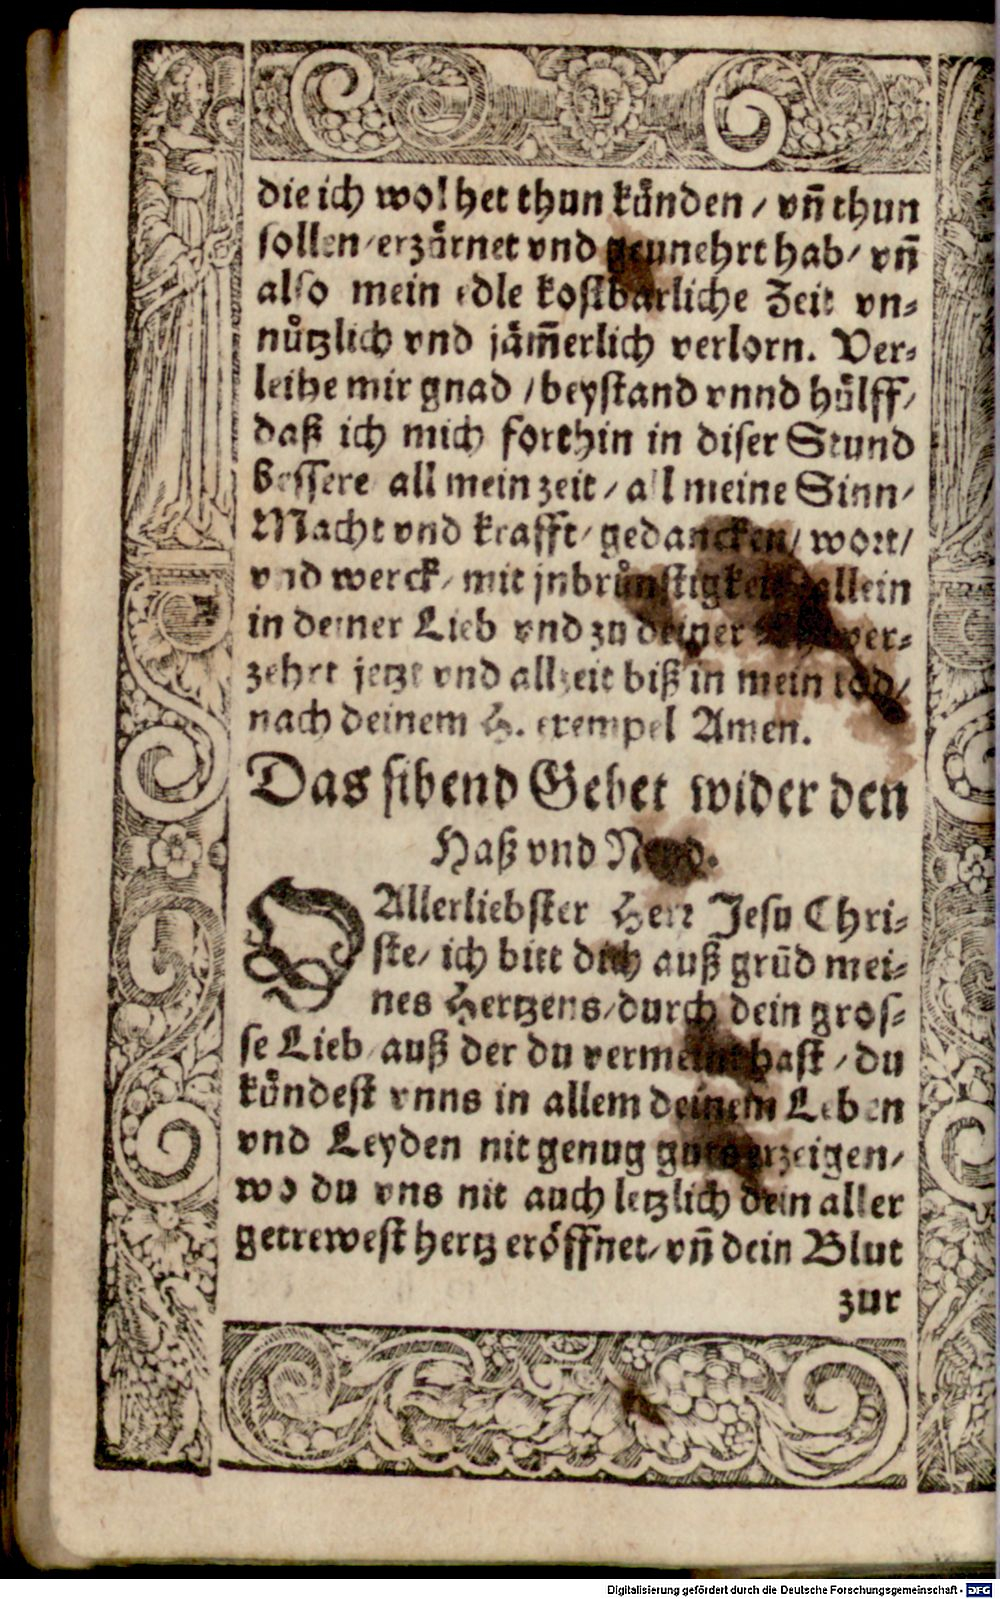 die ich wol het thun kůnden / vñ thun
sollen / erzůrnet vnd geunehrt hab / vñ
also mein edle kostbarliche Zeit vn-
nůtzlich vnd jäm̃erlich verlorn. Ver-
leihe mir gnad / beystand vnnd hůlff /
daß ich mich forthin in diser Stund
bessere all mein zeit / all meine Sinn /
Macht vnd krafft / gedancken / wort /
vnd werck / mit jnbrůnstigkeit allein
in deiner Lieb vnd zu deiner ver-
zehrt jetzt vnd allzeit biß in mein tod /
nach deinem H. exempel Amen.
Das sibend Gebet wider den
Haß vnd Neyd.
O Allerliebster Herr Jesu Chri-
ste / ich bitt dich auß grūd mei-
nes Hertzens / durch dein gros-
se Lieb / auß der du vermeint hast / du
kůndest vnns in allem deinem Leben
vnd Leyden nit genug guts erzeigen /
wo du vns nit auch letzlich dein aller
getrewest hertz eröffnet / vñ dein Blut
zur
Digitalisierung gefördert durch die Deutsche Forschungsgemeinschaft - DFG